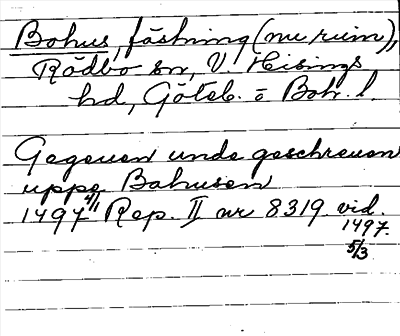 Bohus, fästning (nu ruin),
Rödbo sn, V. Hisings
hd, Göteb. o Boh. l.
Gegeuen unde geschreuen
uppe Bahusen
1497 4/1 Rep. II nr 8319 vid.
1497.
5/3